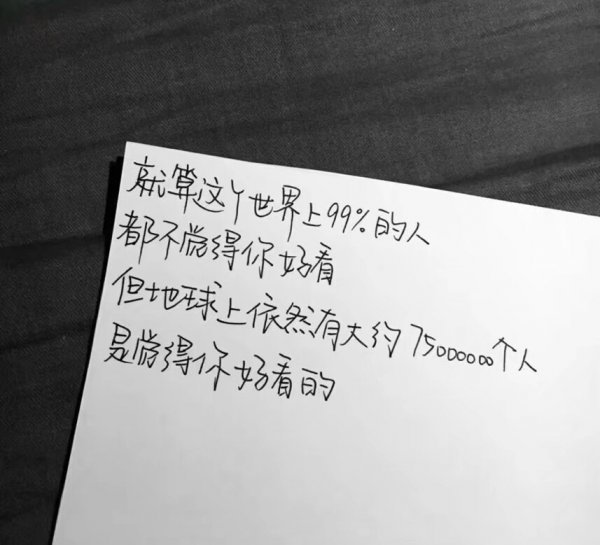 就算这个世界上99%的人
都不觉得你好看
但地球上依然有大约75000000个人
是觉得你好看的